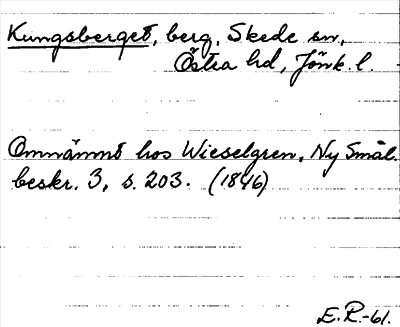 Kungsberget, berg, Skede sn,
Östra hd, Jönk. l.
Omnämnt hos Wieselgren, Ny Smål.
beskr. 3, s. 203. (1846)
E.R.-61.